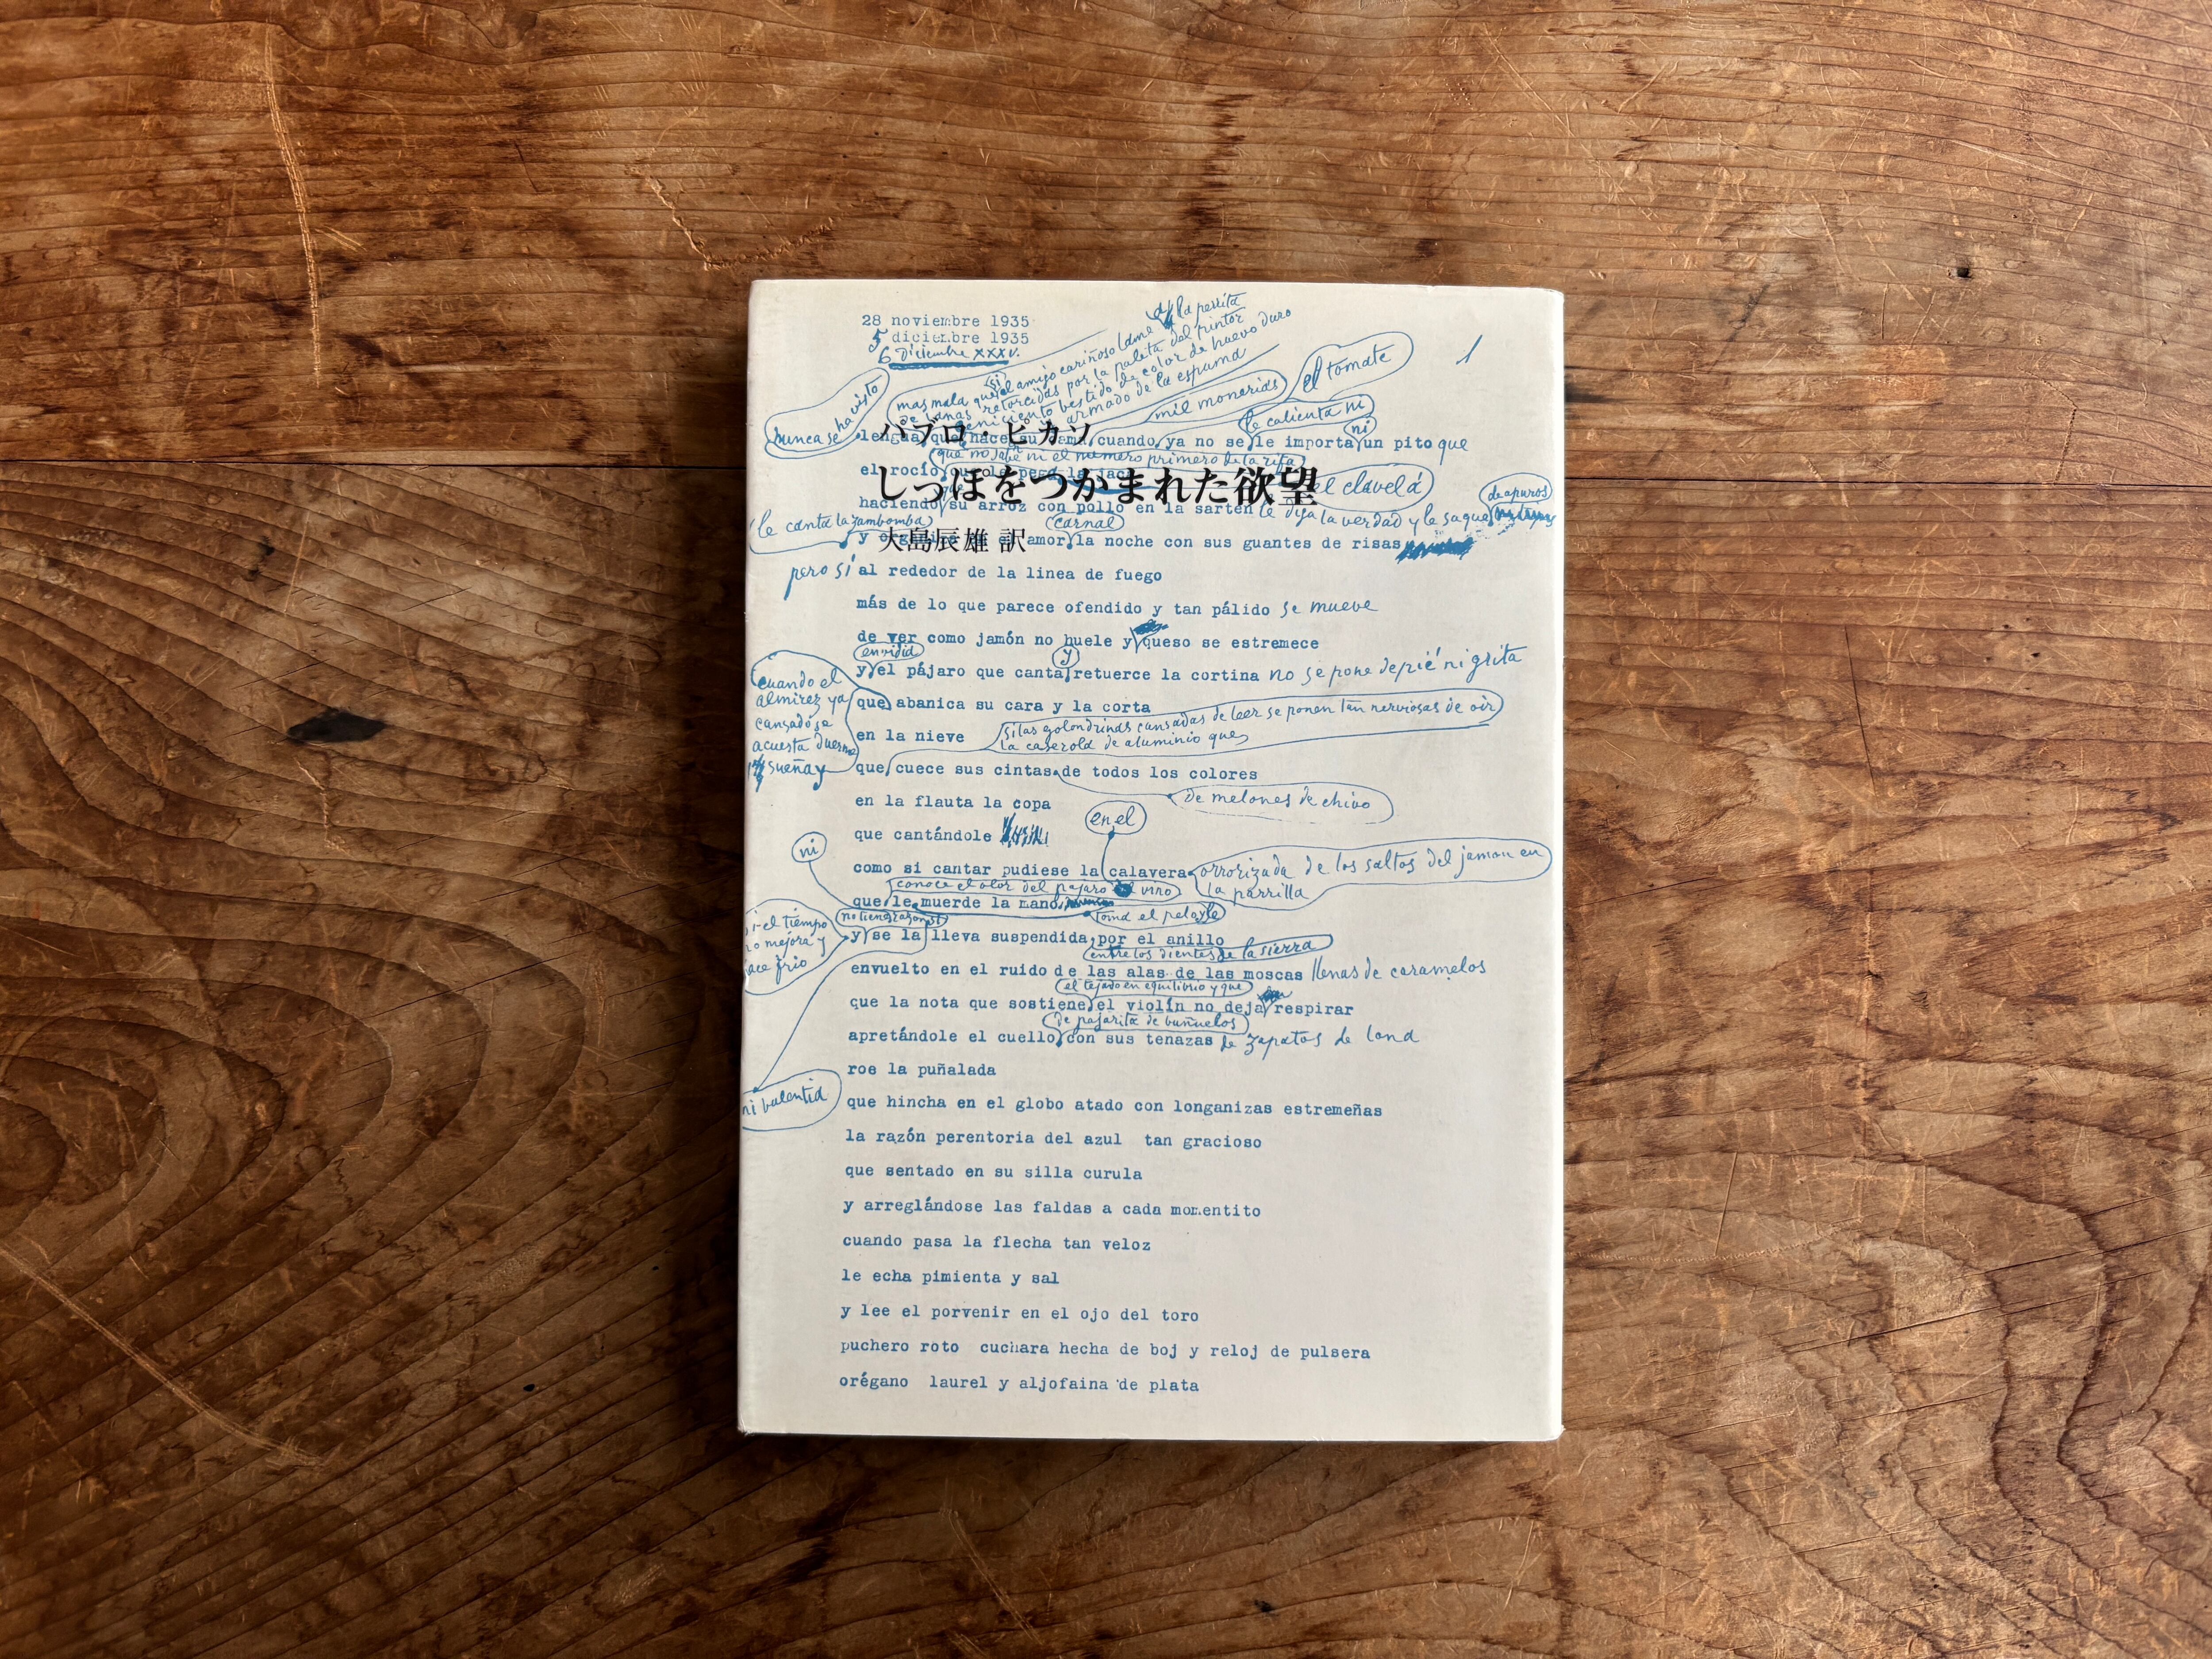 28 noviembre 1935
5 diciembre 1935
6 Diciembre XXXV.
1
a la perrita
si el amigo cariñoso lame
mas mala que
de lanas retorcidas por la paleta del pintor
ceniciento vestido de color de huevo duro
armado de la espuma
mil monerias
el tomate
nunca se ha visto
le calienta ni
ni
パブロ・ピカソ
lengua que hace su cama cuando ya no se le importa un pito que
que no sabe ni el numero primero de la rifa
el rocío
しっぽをつかまれた欲望
el clavel a
de apuros
haciendo su arroz con pollo en la sartén le diga la verdad y le saque
le canta la zambomba
carnal
大島辰雄 訳
y amor la noche con sus guantes de risas
pero si al rededor de la linea de fuego
más de lo que parece ofendido y tan pálido se mueve
de ver como jamón no huele y queso se estremece
envidia
y
y el pájaro que canta retuerce la cortina no se pone de pié ni grita
cuando el
almirez ya
cansado se
acuesta duerme
sueña y
que abanica su cara y la corta
si las golondrinas cansadas de leer se ponen tan nerviosas de oir
la caserola de aluminio que
en la nieve
que cuece sus cintas de todos los colores
de melones de chivo
en la flauta la copa
en el
que cantándole
ni
como si cantar pudiese la calavera orrorizada de los saltos del jamon en
la parrilla
conoce el olor del pajaro vino
que le muerde la mano
no tiene razon si
toma el pelo y le
si el tiempo
no mejora y
ace frio
y se la lleva suspendida por el anillo
entre los dientes de la sierra
envuelto en el ruido de las alas de las moscas llenas de caramelos
el tejado en equilibrio y que
que la nota que sostiene el violín no deja respirar
de pajarita de buñuelos
apretándole el cuello con sus tenazas de zapatos de lona
roe la puñalada
ni valentia
que hincha en el globo atado con longanizas estremeñas
la razón perentoria del azul tan gracioso
que sentado en su silla curula
y arreglándose las faldas a cada momentito
cuando pasa la flecha tan veloz
le echa pimienta y sal
y lee el porvenir en el ojo del toro
puchero roto cuchara hecha de boj y reloj de pulsera
orégano laurel y aljofaina de plata